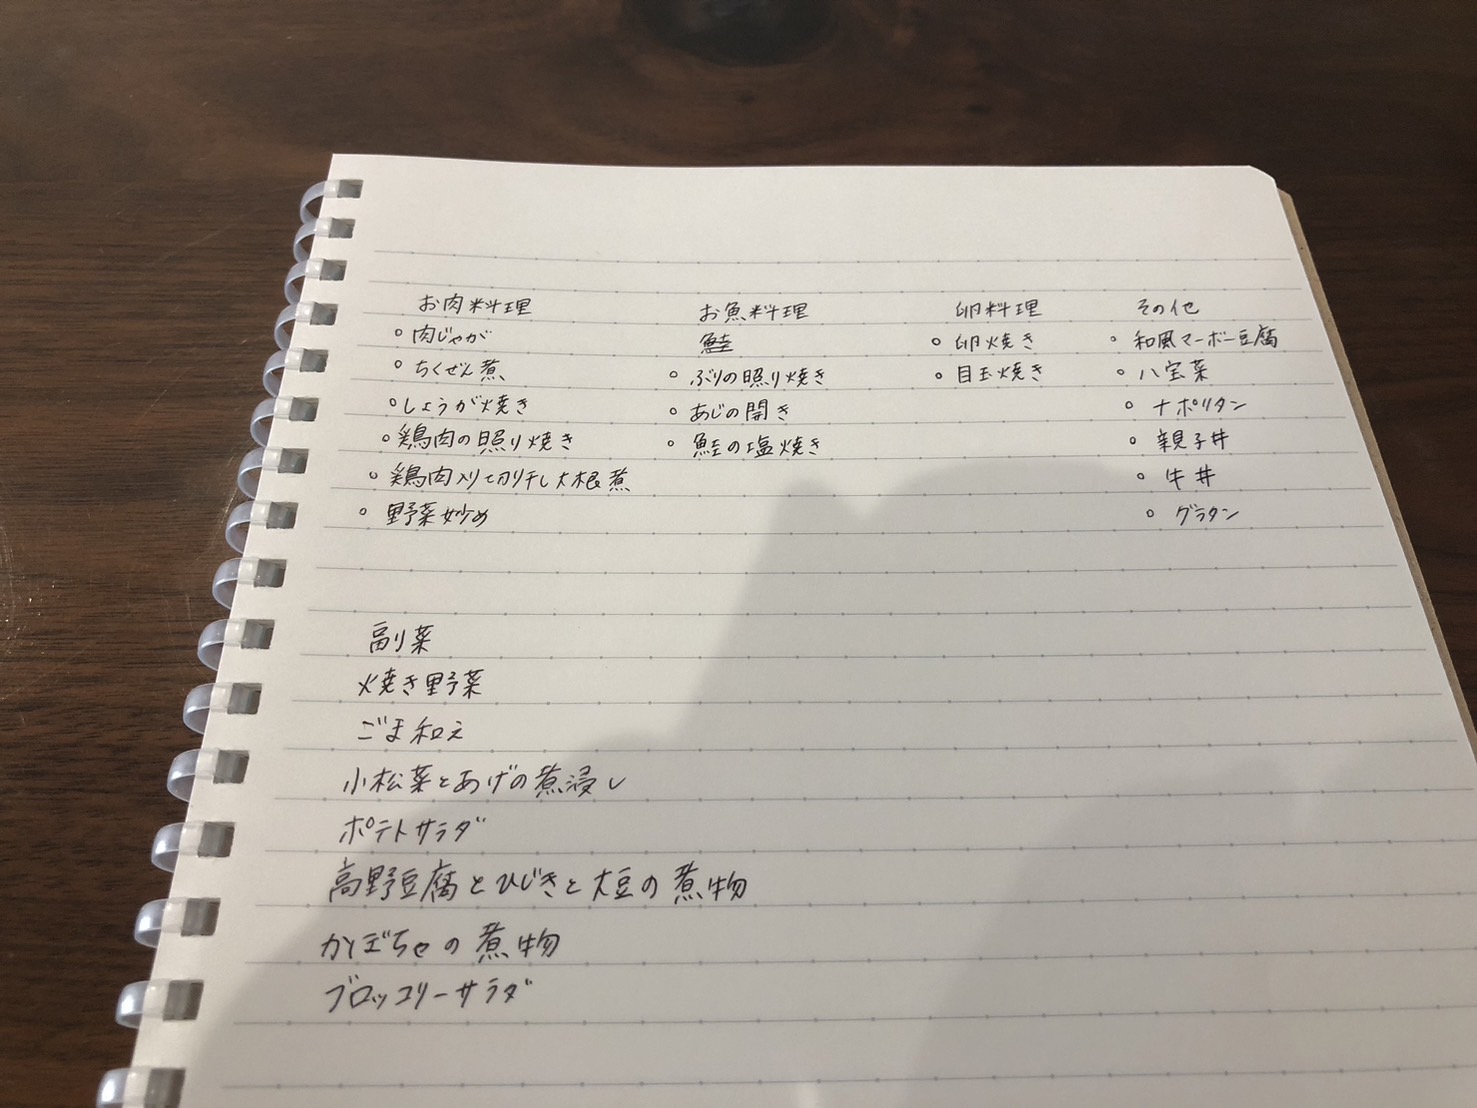 お肉料理
・肉じゃが
・ちくぜん煮
・しょうが焼き
・鶏肉の照り焼き
・鶏肉入り切り干し大根煮
・野菜炒め
お魚料理
鮭
・ぶりの照り焼き
・あじの開き
・鮭の塩焼き
卵料理
・卵焼き
・目玉焼き
その他
・和風マーボー豆腐
・八宝菜
・ナポリタン
・親子丼
・牛丼
・グラタン
副菜
焼き野菜
ごま和え
小松菜とあげの煮浸し
ポテトサラダ
高野豆腐とひじきと大豆の煮物
かぼちゃの煮物
ブロッコリーサラダ